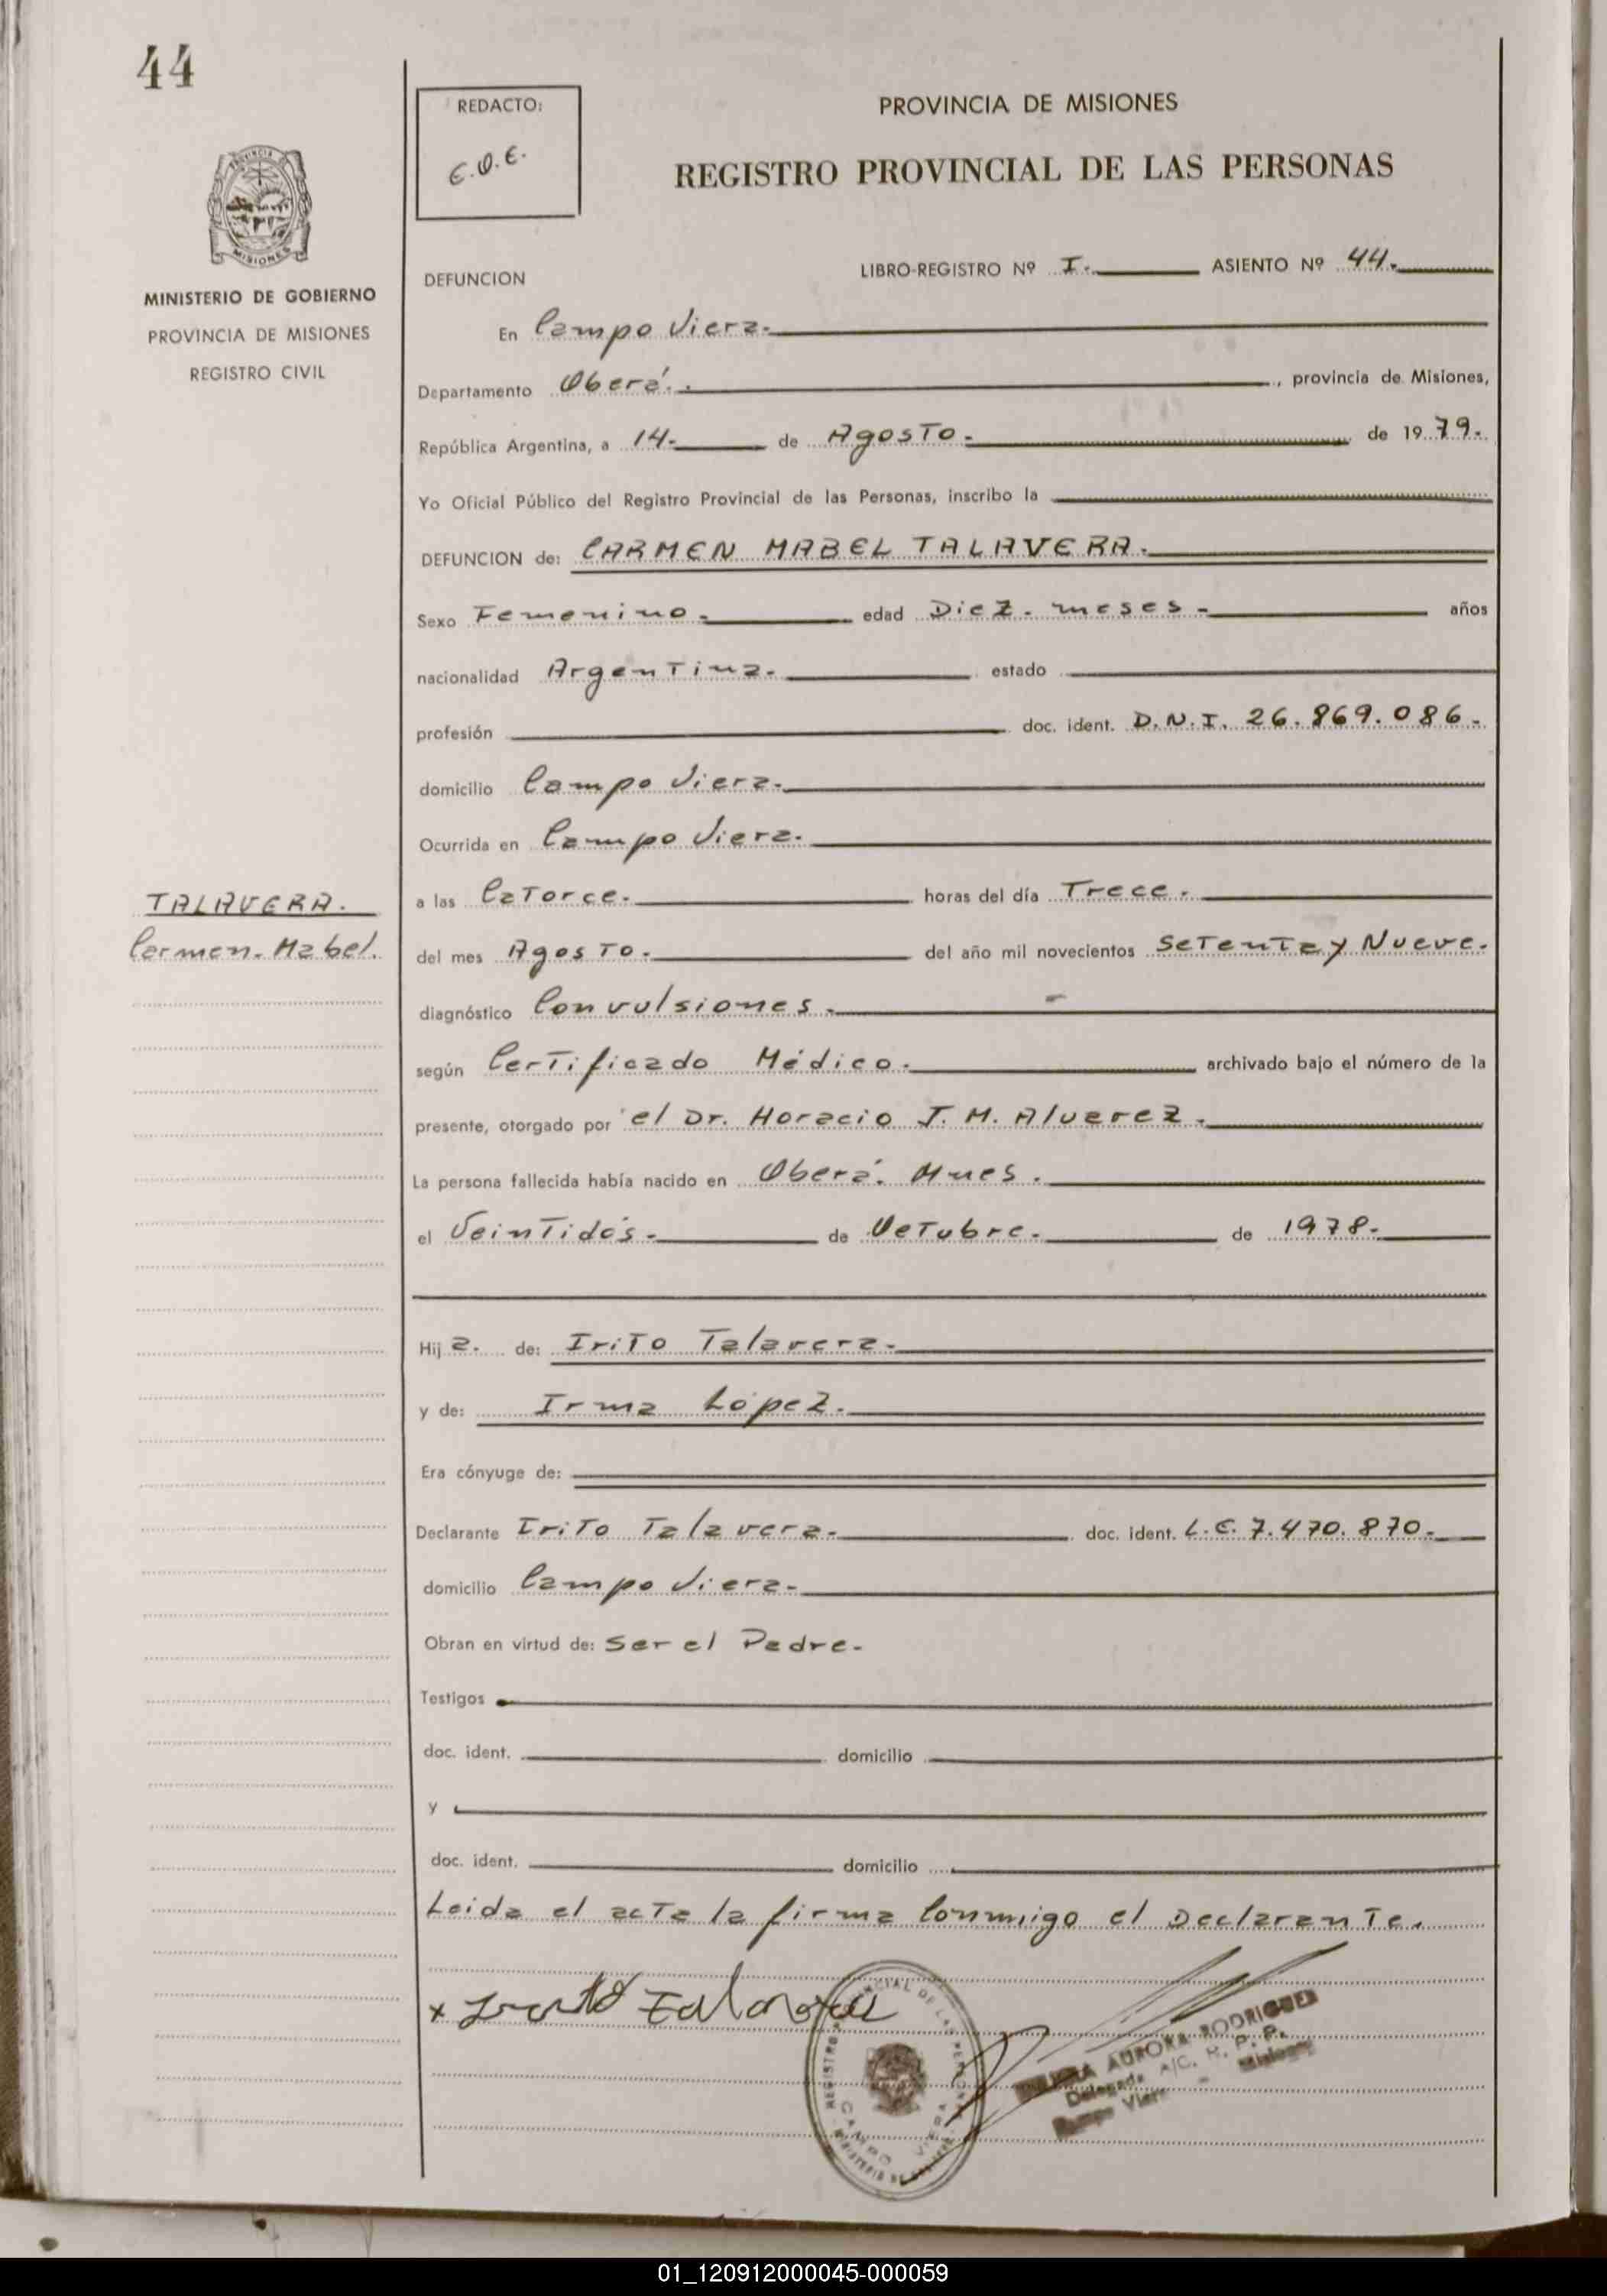 44
REDACTO:
E.O.E.
PROVINCIA DE MISIONES
REGISTRO PROVINCIAL DE LAS PERSONAS
PROVINCIA DE
MISIONES
MINISTERIO DE GOBIERNO
PROVINCIA DE MISIONES
REGISTRO CIVIL
DEFUNCION
LIBRO-REGISTRO Nº I.- ASIENTO Nº 44.
En Campo Viera.
Departamento Oberá. , provincia de Misiones,
República Argentina, a 14.- de Agosto.- de 1979.-
Yo Oficial Público del Registro Provincial de las Personas, inscribo la
DEFUNCION de: CARMEN MABEL TALAVERA.
Sexo Femenino. edad Diez.- meses.- años
nacionalidad Argentina. estado
profesión doc. ident. D.N.I. 26.869.086.-
domicilio Campo Viera.
Ocurrida en Campo Viera.
TALAVERA.
Carmen. Mabel.
a las Catorce. horas del día Trece.
del mes Agosto. del año mil novecientos Setenta y Nueve.
diagnóstico Convulsiones.
según Certificado Médico. archivado bajo el número de la
presente, otorgado por el Dr. Horacio J. M. Alvarez.
La persona fallecida había nacido en Oberá. Mnes.
el Veintidós.- de Octubre.- de 1978.-
Hija. de: Irito Talavera.-
y de: Irma López.
Era cónyuge de:
Declarante Irito Talavera.- doc. ident. L.E. 7.470.870.-
domicilio Campo Viera.-
Obran en virtud de: Ser el Padre.-
Testigos
doc. ident. domicilio
y
doc. ident. domicilio
Leida el acta la firma Conmigo el Declarante.
x Talavera
REGISTRO PROVINCIAL DE LAS PERSONAS
CAMPO VIERA
MINISTERIO DE
AURORA RODRIGUEZ
Delegada A/C. R. P. P.
Campo Viera - Misiones
01_120912000045-000059